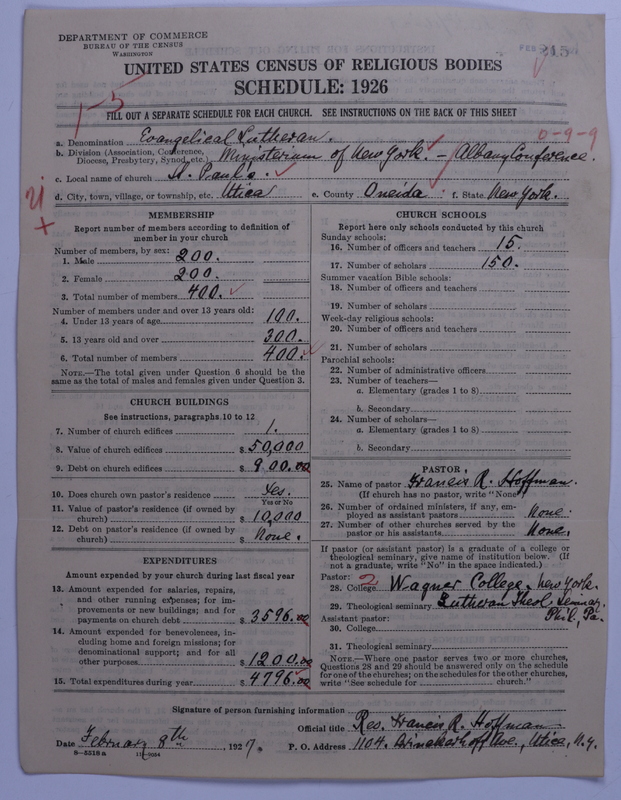 DEPARTMENT OF COMMERCE
BUREAU OF THE CENSUS
WASHINGTON
FEB
UNITED STATES CENSUS OF RELIGIOUS BODIES
SCHEDULE: 1926
1-5
FILL OUT A SEPARATE SCHEDULE FOR EACH CHURCH. SEE INSTRUCTIONS ON THE BACK OF THIS SHEET
0-9-9
a. Denomination Evangelical Lutheran.
b. Division (Association, Conference, Diocese, Presbytery, Synod, etc.) Ministerium of New York. - Albany Conference.
c. Local name of church St. Paul's.
d. City, town, village, or township, etc. Utica e. County Oneida f. State New York.
MEMBERSHIP
Report number of members according to definition of
member in your church
Number of members, by sex:
1. Male 200.
2. Female 200.
3. Total number of members 400.
Number of members under and over 13 years old:
4. Under 13 years of age 100.
5. 13 years old and over 300.
6. Total number of members 400.
NOTE.—The total given under Question 6 should be the
same as the total of males and females given under Question 3.
CHURCH BUILDINGS
See instructions, paragraphs 10 to 12
7. Number of church edifices 1.
8. Value of church edifices $ 50,000
9. Debt on church edifices $ 900.00
10. Does church own pastor's residence Yes.
Yes or No
11. Value of pastor's residence (if owned by
church) $ 10,000
12. Debt on pastor's residence (if owned by
church) $ None.
EXPENDITURES
Amount expended by your church during last fiscal year
13. Amount expended for salaries, repairs,
and other running expenses; for im-
provements or new buildings; and for
payments on church debt $ 3596.00
14. Amount expended for benevolences, in-
cluding home and foreign missions; for
denominational support; and for all
other purposes $ 1200.00
15. Total expenditures during year $ 4796.00
CHURCH SCHOOLS
Report here only schools conducted by this church
Sunday schools:
16. Number of officers and teachers 15.
17. Number of scholars 150.
Summer vacation Bible schools:
18. Number of officers and teachers
19. Number of scholars
Week-day religious schools:
20. Number of officers and teachers
21. Number of scholars
Parochial schools:
22. Number of administrative officers
23. Number of teachers—
a. Elementary (grades 1 to 8)
b. Secondary
24. Number of scholars—
a. Elementary (grades 1 to 8)
b. Secondary
PASTOR
25. Name of pastor Francis R. Hoffman.
(If church has no pastor, write "None")
26. Number of ordained ministers, if any, em-
ployed as assistant pastors None.
27. Number of other churches served by the
pastor or his assistants None.
If pastor (or assistant pastor) is a graduate of a college or
theological seminary, give name of institution below. (If
not a graduate, write "No" in the space indicated.)
Pastor:
28. College 2 Wagner College, New York.
29. Theological seminary Lutheran Theol. Seminary
Phil, Pa.
Assistant pastor:
30. College
31. Theological seminary
NOTE.—Where one pastor serves two or more churches,
Questions 28 and 29 should be answered only on the schedule
for one of the churches; on the schedules for the other churches,
write "See schedule for church."
Signature of person furnishing information
Official title Rev. Francis R. Hoffman
Date February 8th, 1927. P. O. Address 1104. Brinckerhoff Ave., Utica, N.Y.
8-5318a